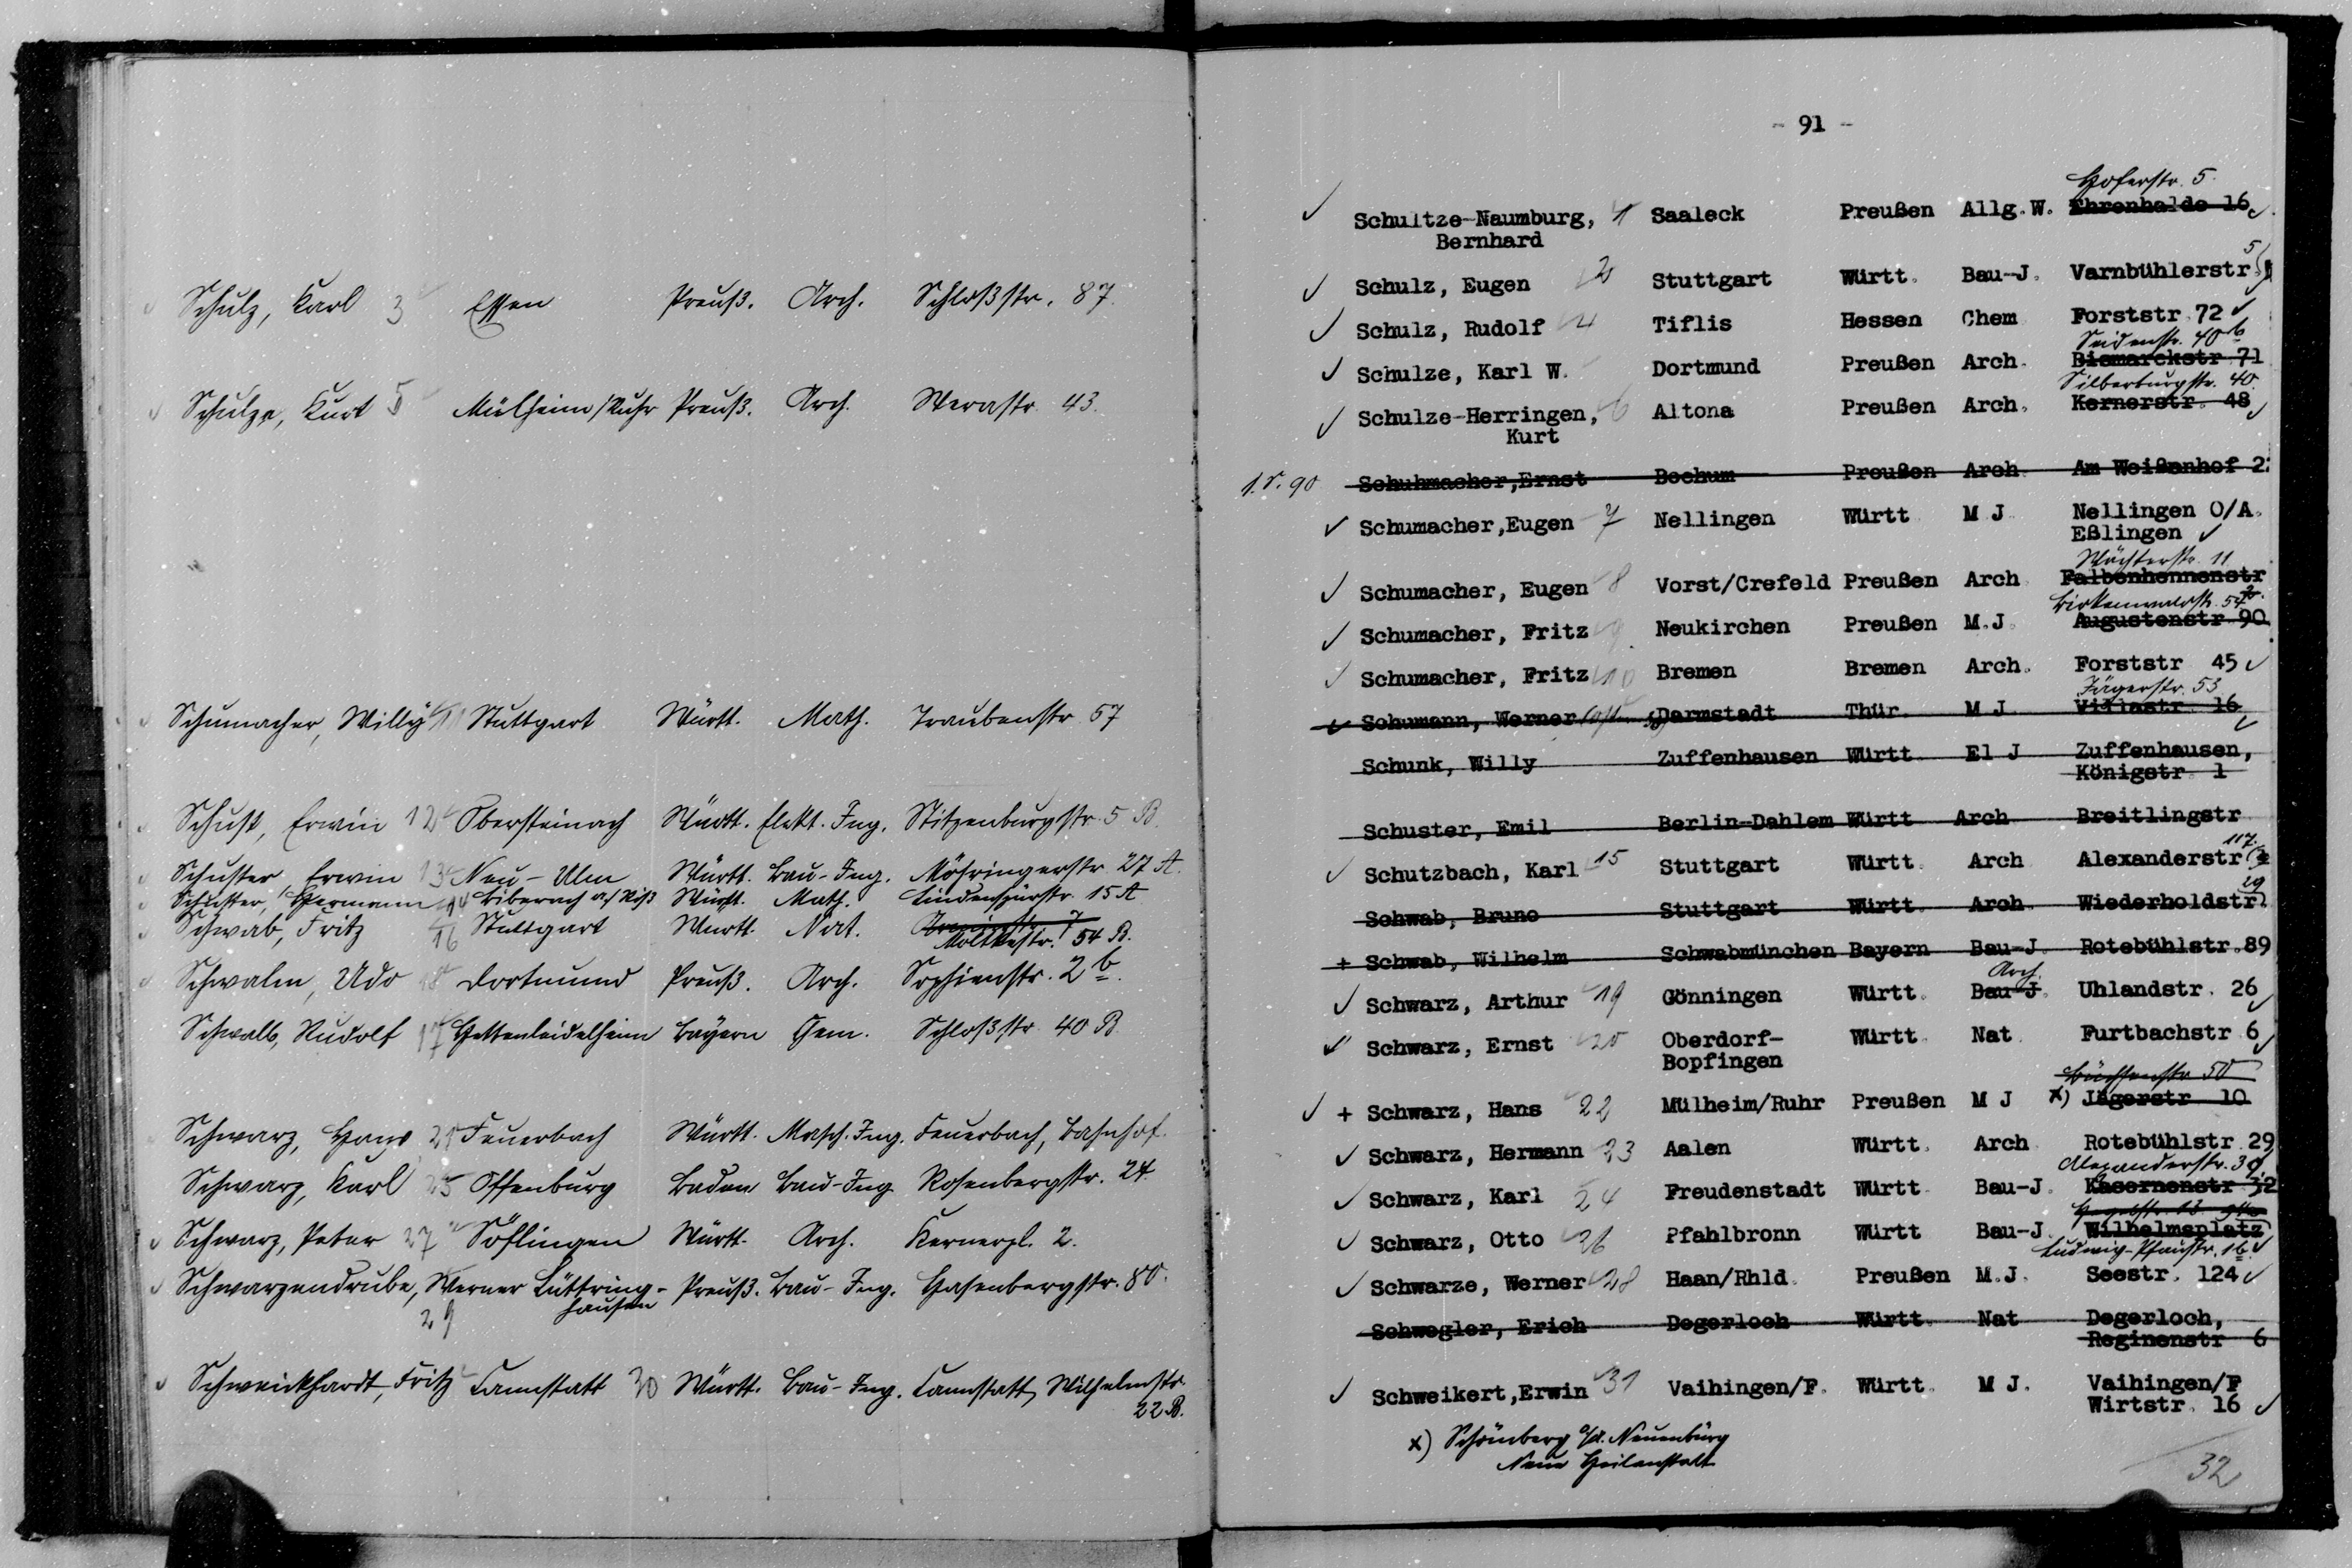 Schulz, Karl 3 Essen Preuß. Arch. Schloßstr. 87.
Schulze, Kurt 5 Mülheim/Ruhr Preuß. Arch. Werastr. 43.
Schumacher, Willy 11 Stuttgart Württ. Math. Traubenstr. 57
Schust, Erwin 12 Obersteinach Württ. Elekt. Ing. Stitzenburgstr. 5 B.
Schuster Erwin 13 Neu-Ulm Württ. Bau-Ing. Möhringerstr. 27 A.
Schuster, Hermann 14 Biberach a/Riß Württ. Math. Lindenspürstr. 15 A
Schwab, Fritz 16 Stuttgart Württ. Nat. 7
Moltkestr. 54 B.
Schwalm, Udo 18 Dortmund Preuß. Arch. Sophienstr. 2 b.
Schwalb, Rudolf 17 Hettenleidelheim Bayern Chem. Schloßstr. 40 B
Schwarz, Hans 21 Feuerbach Württ. Masch. Ing. Feuerbach, Bahnhof.
Schwarz, Karl 25 Offenburg Baden Bau-Ing Rosenbergstr. 24.
Schwarz, Peter 27 Söflingen Württ. Arch. Kernerpl. 2.
Schwarzendrube, Werner Lüttring- Preuß. Bau-Ing. Hasenbergstr. 80.
29 hausen
Schweickhardt, Fritz Cannstatt 30 Württ. Bau-Ing. Cannstatt, Wilhelmstr.
22 B.
- 91 -
Hoferstr. 5.
Schultze-Naumburg, 1 Saaleck Preußen Allg. W. Ehrenhalde 16
Bernhard
5
Schulz, Eugen 2 Stuttgart Württ. Bau-J. Varnbühlerstr
Schulz, Rudolf 4 Tiflis Hessen Chem Forststr 72
Seidenstr. 40 b
Schulze, Karl W. Dortmund Preußen Arch. Bismarckstr 71
Silberburgstr. 40.
Schulze-Herringen, 6 Altona Preußen Arch. Kernerstr. 48
Kurt
1. S. 90 Schuhmacher, Ernst Bochum Preußen Arch Am Weißenhof 2
Schumacher, Eugen 7 Nellingen Württ M J Nellingen O/A.
Eßlingen
Wächterstr. 11
Schumacher, Eugen 8 Vorst/Crefeld Preußen Arch Falbenhennenstr
Birkenwaldstr. 54
Schumacher, Fritz 9 Neukirchen Preußen M.J. Augustenstr 90
Schumacher, Fritz 10 Bremen Bremen Arch. Forststr 45
Jägerstr. 53
Schumann, Werner Darmstadt Thür. M J Villastr 16
Schunk, Willy Zuffenhausen Württ El J Zuffenhausen,
Königstr 1
Schuster, Emil Berlin-Dahlem Württ Arch Breitlingstr
117
Schutzbach, Karl 15 Stuttgart Württ. Arch Alexanderstr
29
Schwab, Bruno Stuttgart Württ Arch Wiederholdstr
+ Schwab, Wilhelm Schwabmünchen Bayern Bau-J. Rotebühlstr. 89
Arch.
Schwarz, Arthur 19 Gönningen Württ. Bau-J. Uhlandstr. 26
Schwarz, Ernst 20 Oberdorf- Württ. Nat Furtbachstr 6
Bopfingen
Büchsenstr 50
+ Schwarz, Hans 22 Mülheim/Ruhr Preußen M J x) Jägerstr 10
Schwarz, Hermann 23 Aalen Württ. Arch Rotebühlstr 29
Alexanderstr. 39.
Schwarz, Karl 24 Freudenstadt Württ. Bau-J. Kasernenstr 32
Schwarz, Otto 26 Pfahlbronn Württ Bau-J. Wilhelmsplatz
Ludwig-Pfaustr. 16
Schwarze, Werner 28 Haan/Rhld. Preußen M.J. Seestr. 124
Schwegler, Erich Degerloch Württ Nat Degerloch,
Reginenstr 6
Schweikert, Erwin 31 Vaihingen/F. Württ. M J. Vaihingen/F
Wirtstr. 16
x) Schömberg O/A. Neuenbürg
Neue Heilanstalt
32